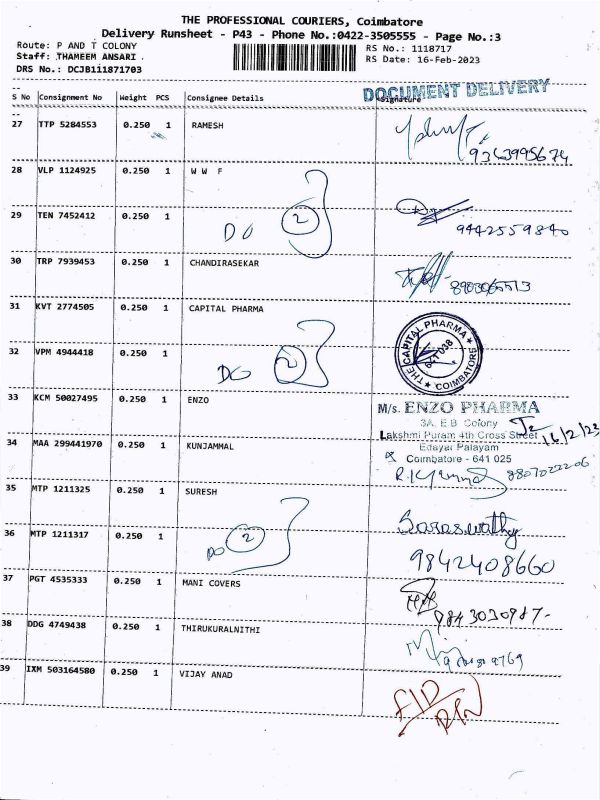 THE PROFESSIONAL COURIERS, Coimbatore
Delivery Runsheet - P43 - Phone No.:0422-3505555 - Page No.:3
Route: P AND T COLONY RS No.: 1118717
Staff: THAMEEM ANSARI . RS Date: 16-Feb-2023
DRS No.: DCJB111871703
DOCUMENT DELIVERY
S No Consignment No Weight PCS Consignee Details Signature
27 TTP 5284553 0.250 1 RAMESH
9363995674
28 VLP 1124925 0.250 1 W W F
29 TEN 7452412 0.250 1 DO 2
9442559840
30 TRP 7939453 0.250 1 CHANDIRASEKAR
31 KVT 2774505 0.250 1 CAPITAL PHARMA
THE CAPITAL PHARMA
641 038
★ COIMBATORE ★
32 VPM 4944418 0.250 1 DO 2
33 KCM 50027495 0.250 1 ENZO
M/s. ENZO PHARMA
3A, E.B. Colony
Lakshmi Puram 4th Cross Street 16/2/23
Edayar Palayam
Coimbatore - 641 025
34 MAA 299441970 0.250 1 KUNJAMMAL
8807022206
35 MTP 1211325 0.250 1 SURESH
Saraswathy
36 MTP 1211317 0.250 1 DO 2
9842408660
37 PGT 4535333 0.250 1 MANI COVERS
9843030987-
38 DDG 4749438 0.250 1 THIRUKURALNITHI
39 IXM 503164580 0.250 1 VIJAY ANAD